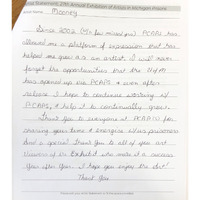 Artist Statement, 24th Annual Exhibition of Art by Michigan Prisoners
Mooney
Since 2002 (My few missed yrs) PCAPs has
allowed me a platform of expression that has
helped me grow as an artist. I will never
forget the opportunities that the
has opened up via PCAPs & even after
release I hope to continue working w/
PCAPs, & help it to continually grow.
Thank you to everyone at PCAP for
sharing your time & energies w/us prisoners
And a special Thank You to all of you art
viewers of the Exhibit who make it a success
Year after Year. I hope you enjoy the Art!
Thank You